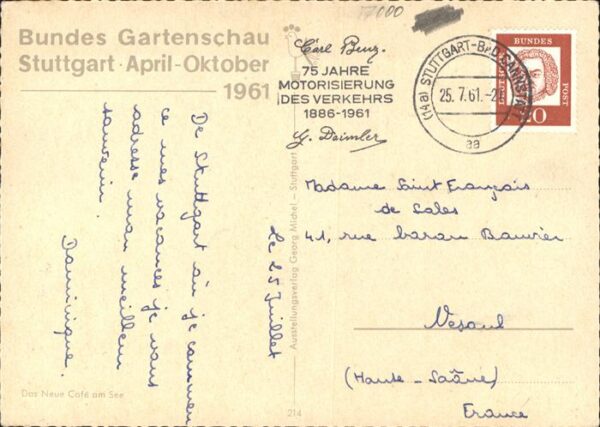 17000
Bundes Gartenschau
Stuttgart · April-Oktober
1961
Carl Benz
75 JAHRE
MOTORISIERUNG
DES VERKEHRS
1886-1961
G. Daimler
(14a) STUTTGART-BAD CANNSTATT
25.7.61.-2
aa
BUNDES
POST
20
De Stuttgart où je commen
ce mes vacances je vous
adresse mon meilleur
souvenir.
Dominique.
Le 25 Juillet
Ausstellungsverlag Georg Michel - Stuttgart
Madame Saint François
de Sales
41, rue baron Bouvier
Vesoul
(Haute-Saône)
France
Das Neue Café am See
214